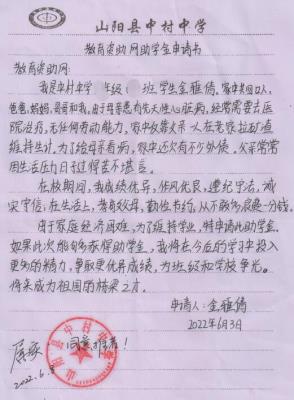 山阳县中村中学
教育资助网助学金申请书
教育资助网:
我是中村中学 年级 班学生金雅倩。家中共四口人,
爸爸,妈妈,哥哥和我,由于母亲患有先天性心脏病,经常需要去医
院治疗,无任何劳动能力,家中仅靠父亲一人在老家拉矿渣
维持生计。为了给母亲看病,家中还欠有不少外债。父亲常常
因生活压力日子过得苦不堪言。
在校期间,我成绩优异,作风优良,遵纪守法,诚
实守信;在生活上,孝敬父母,勤俭节约,从不敢多浪费一分钱。
由于家庭经济困难,为了维持学业,特申请此助学金。
如果此次能够获得助学金,我将在今后的学习中投入
更多的精力,争取更优异成绩,为班级和学校争光。
将来成为祖国的栋梁之才。
申请人:金雅倩
2022年6月3日
同意推荐!
2022.6.
山阳县中村中学